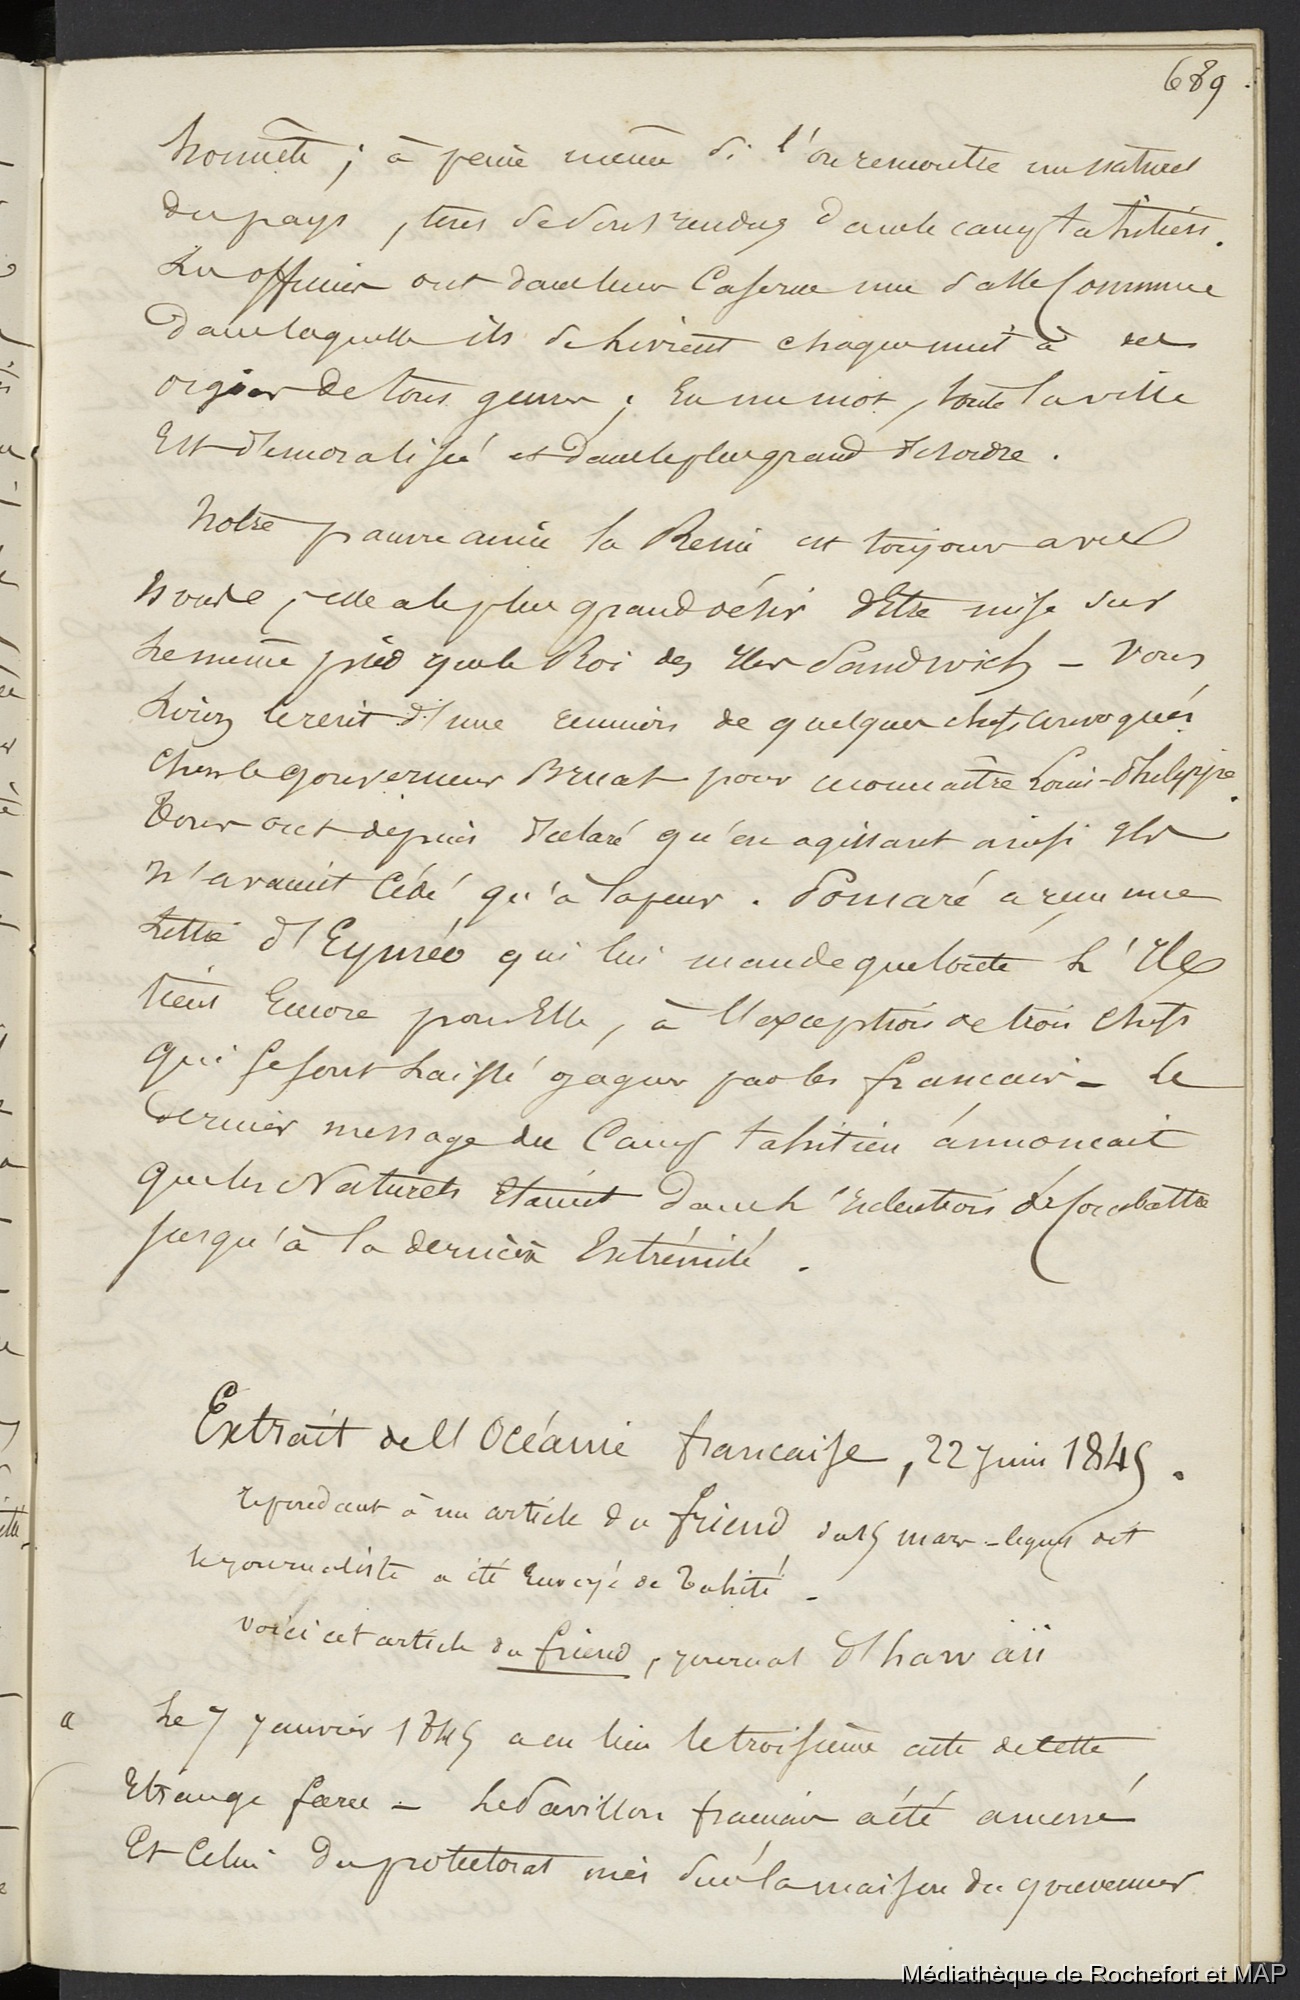 689.
honnête ; à peine même si l'on rencontre un naturel
du pays, tous se sont rendus dans le camp tahitien.
Les officiers ont dans leur Caserne une salle Commune
dans laquelle ils se livrent chaque nuit à des
orgies de tous genres ; En un mot, toute la ville
Est démoralisée et dans le plus grand désordre.
Notre pauvre amie la Reine est toujours avec
nous, elle a le plus grand désir d'Etre mise sur
le même pied que le Roi des Iles Sandwich - Vous
lirez le récit d'une réunion de quelques chefs convoqués
chez le gouverneur Bruat pour reconnaître Louis-Philippe.
Tous ont depuis déclaré qu'en agissant ainsi Ils
n'avaient Cédé qu'à la peur. Pomaré a reçu une
Lettre d'Eyméo qui lui mande que toute L'Ile
tient Encore pour Elle, à l'exception de trois Chefs
qui se sont Laissé gagner par les francais - Le
dernier message du Camp tahitien annoncait
que les Naturels Etaient dans L'intention de Combattre
jusqu'à la dernière Extrémité.
Extrait de l'Océanie francaise, 22 juin 1845.
repondant à un article du friend du 15 mars - lequel dit
le journaliste a été Envoyé de Tahiti -
voici cet article du friend, journal d'hawaii
a Le 7 janvier 1845 a eu lieu le troisième acte de cette
Etrange farce - Le Pavillon francais a été amené
Et Celui du protectorat mis sur la maison du gouverneur
Médiathèque de Rochefort et MAP